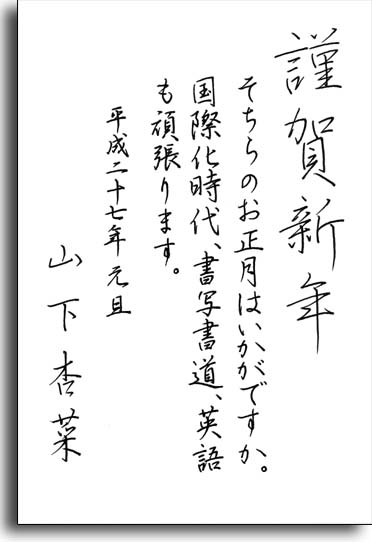 謹賀新年
そちらのお正月はいかがですか。
国際化時代、書写書道、英語
も頑張ります。
平成二十七年 元旦
山下杏菜